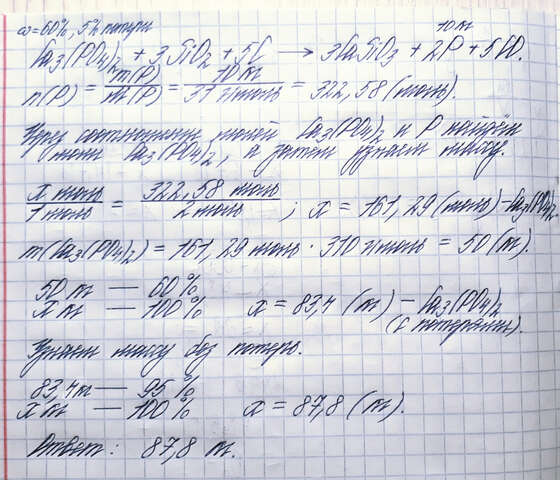 ω=60%, 5% потери
10 т
Ca₃(PO₄)₂ + 3SiO₂ + 5C → 3CaSiO₃ + 2P + 5CO.
n(P) = m(P)/M(P) = 10 кг/31 г/моль = 322,58 (моль).
Через соотношение молей Ca₃(PO₄)₂ и P найдём
моли Ca₃(PO₄)₂, а затем узнаем массу.
x моль/1 моль = 322,58 моль/2 моль ; x = 161,29 (моль) – Ca₃(PO₄)₂
m(Ca₃(PO₄)₂) = 161,29 моль · 310 г/моль = 50 (т).
50 т — 60%
x т — 100% x = 83,4 (т) – Ca₃(PO₄)₂
(с потерями).
Узнаем массу без потерь.
83,4 т — 95%
x т — 100% x = 87,8 (т).
Ответ: 87,8 т.